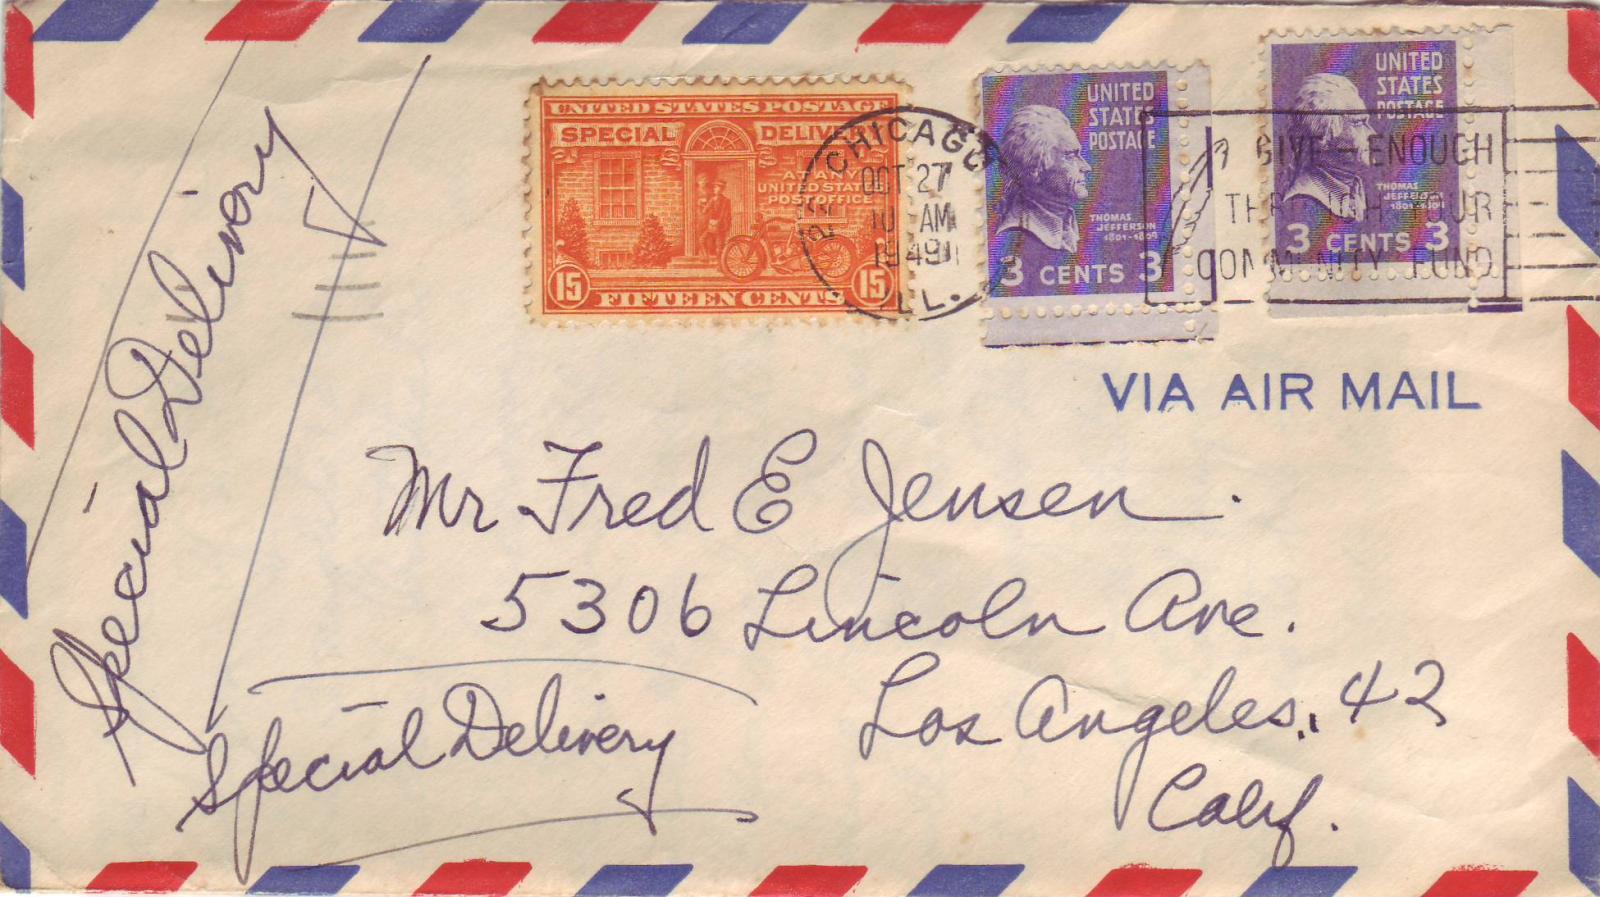 UNITED STATES POSTAGE
SPECIAL DELIVERY
AT ANY
UNITED STATES
POST OFFICE
15 FIFTEEN CENTS 15
CHICAGO
OCT 27
10 AM
1949
ILL.
UNITED
STATES
POSTAGE
THOMAS
JEFFERSON
1801-1809
3 CENTS 3
UNITED
STATES
POSTAGE
THOMAS
JEFFERSON
1801-1809
3 CENTS 3
GIVE - ENOUGH
THROUGH YOUR
COMMUNITY FUND
VIA AIR MAIL
Special Delivery
Mr Fred E Jensen.
5306 Lincoln Ave.
Los Angeles, 42
Calif.
Special Delivery